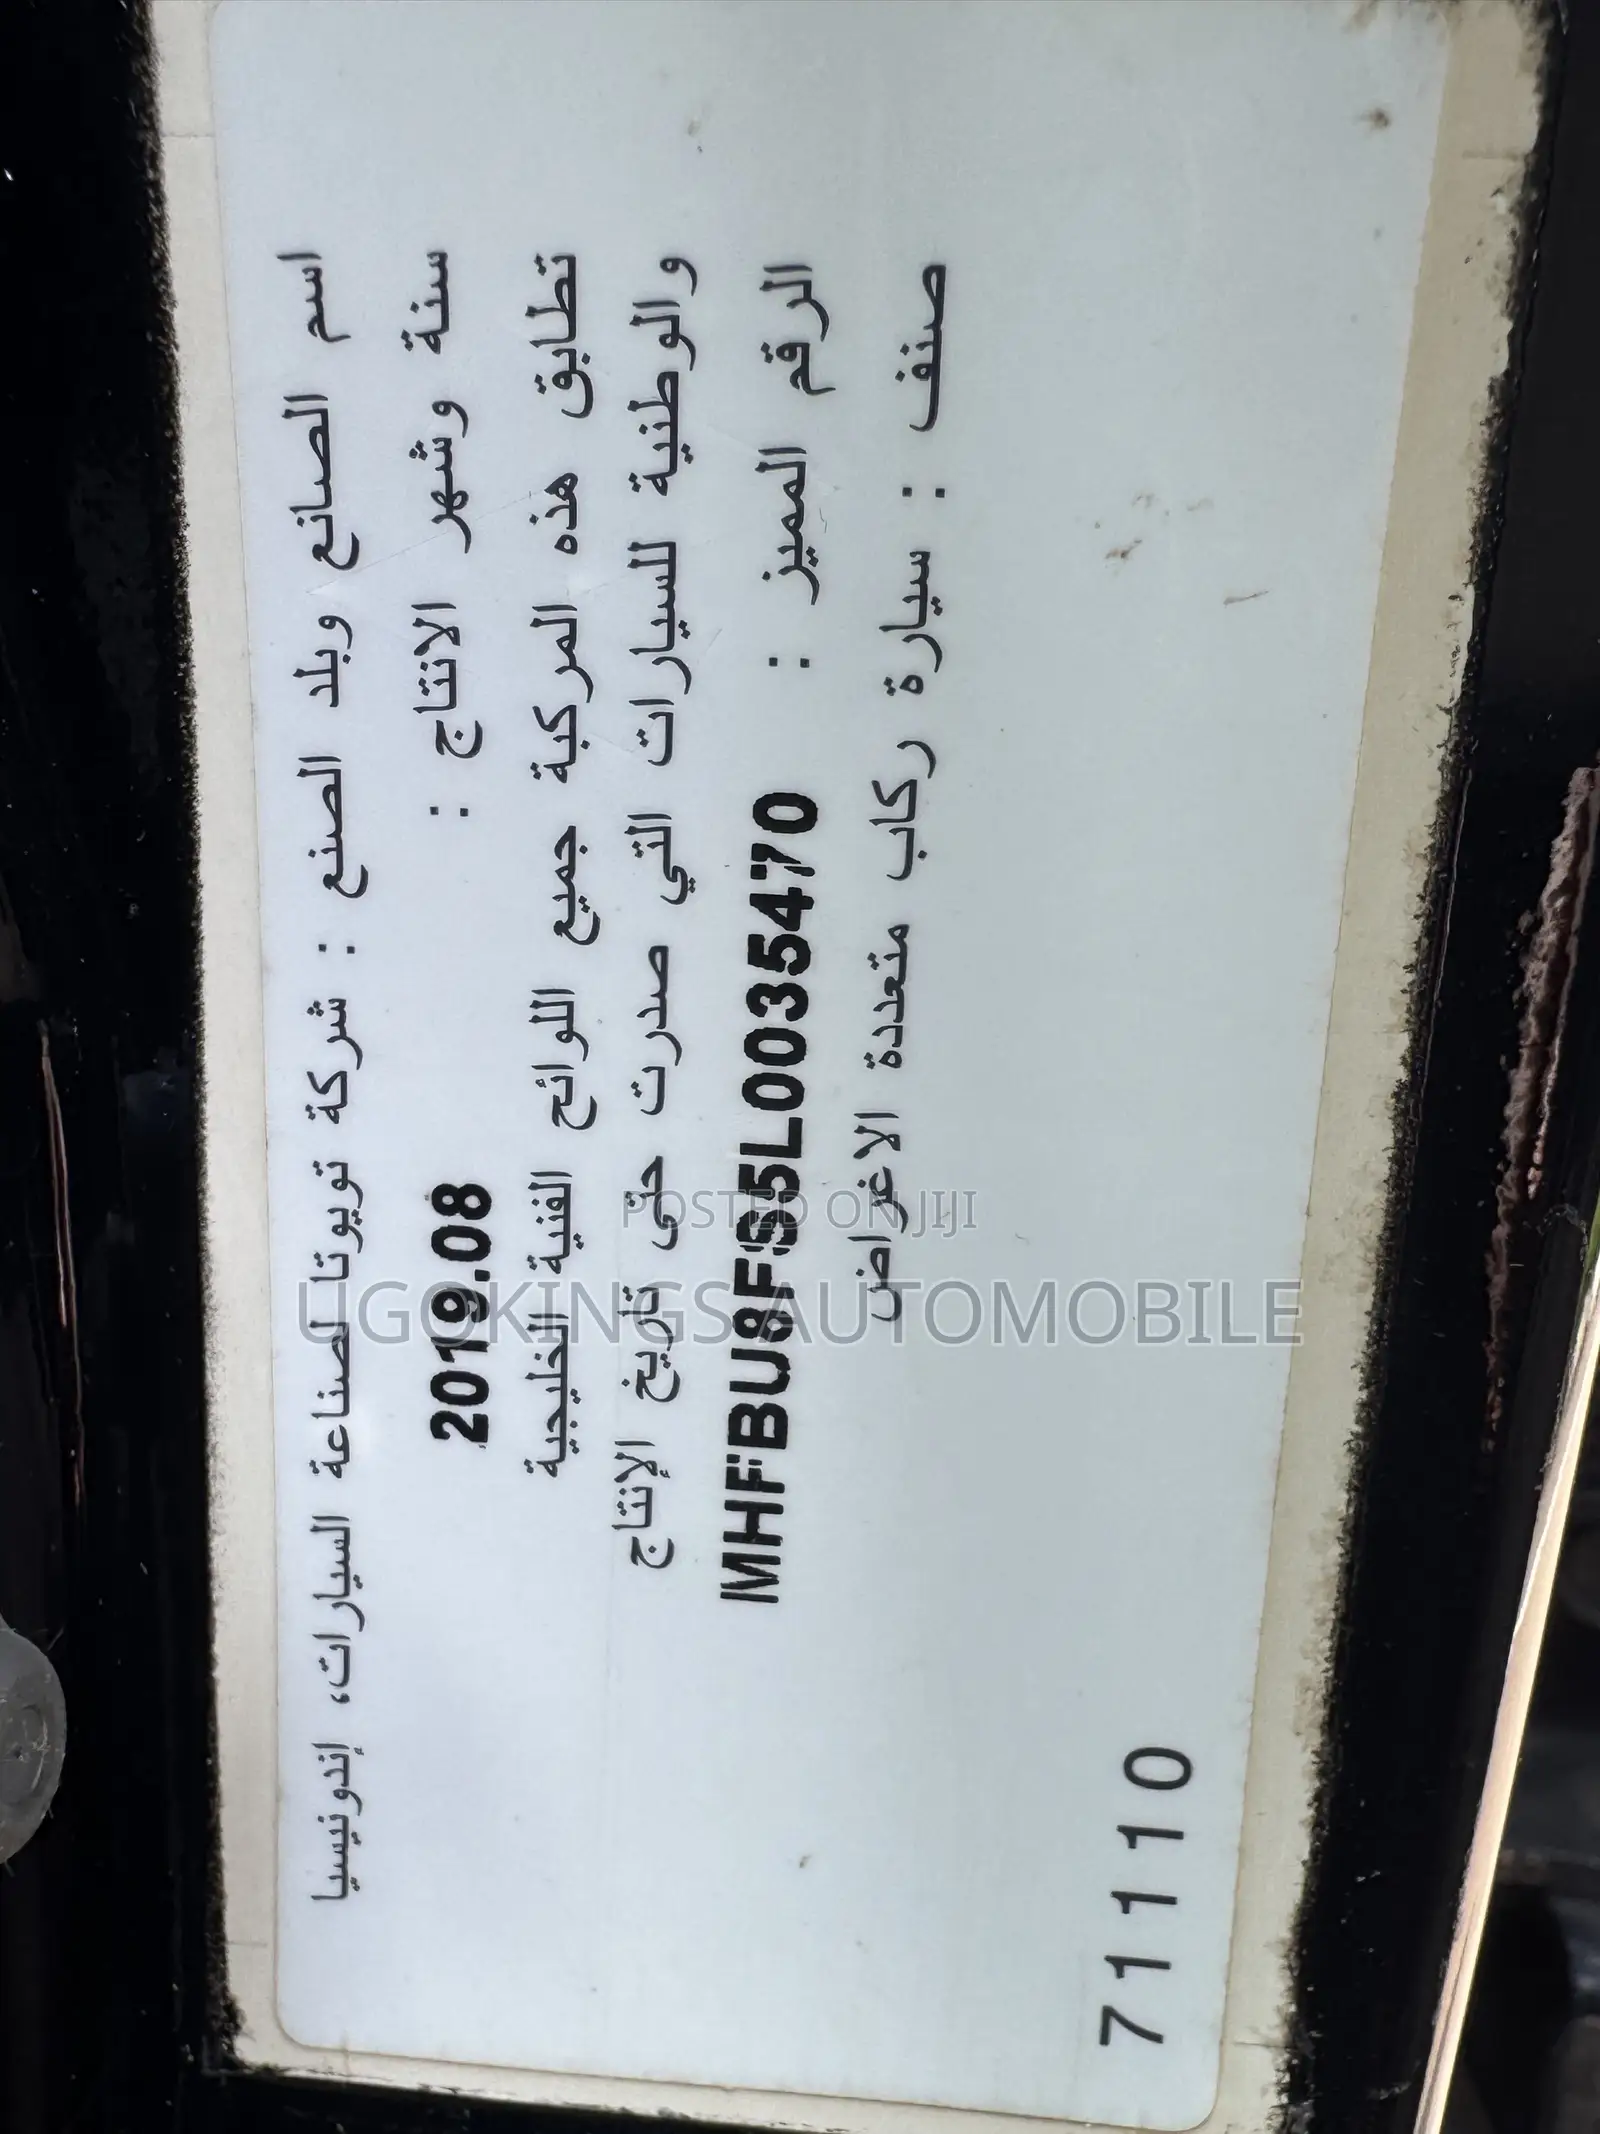 اسم الصانع وبلد الصنع : شركة تويوتا لصناعة السيارات، إندونيسيا
سنة وشهر الانتاج : 2019.08
تطابق هذه المركبة جميع اللوائح الفنية الخليجية
والوطنية للسيارات التي صدرت حتى تاريخ الإنتاج
الرقم المميز : MHFBU8FS5L0035470
صنف : سيارة ركاب متعددة الاغراض
71110
POSTED ON JIJI
UGOKINGS AUTOMOBILE